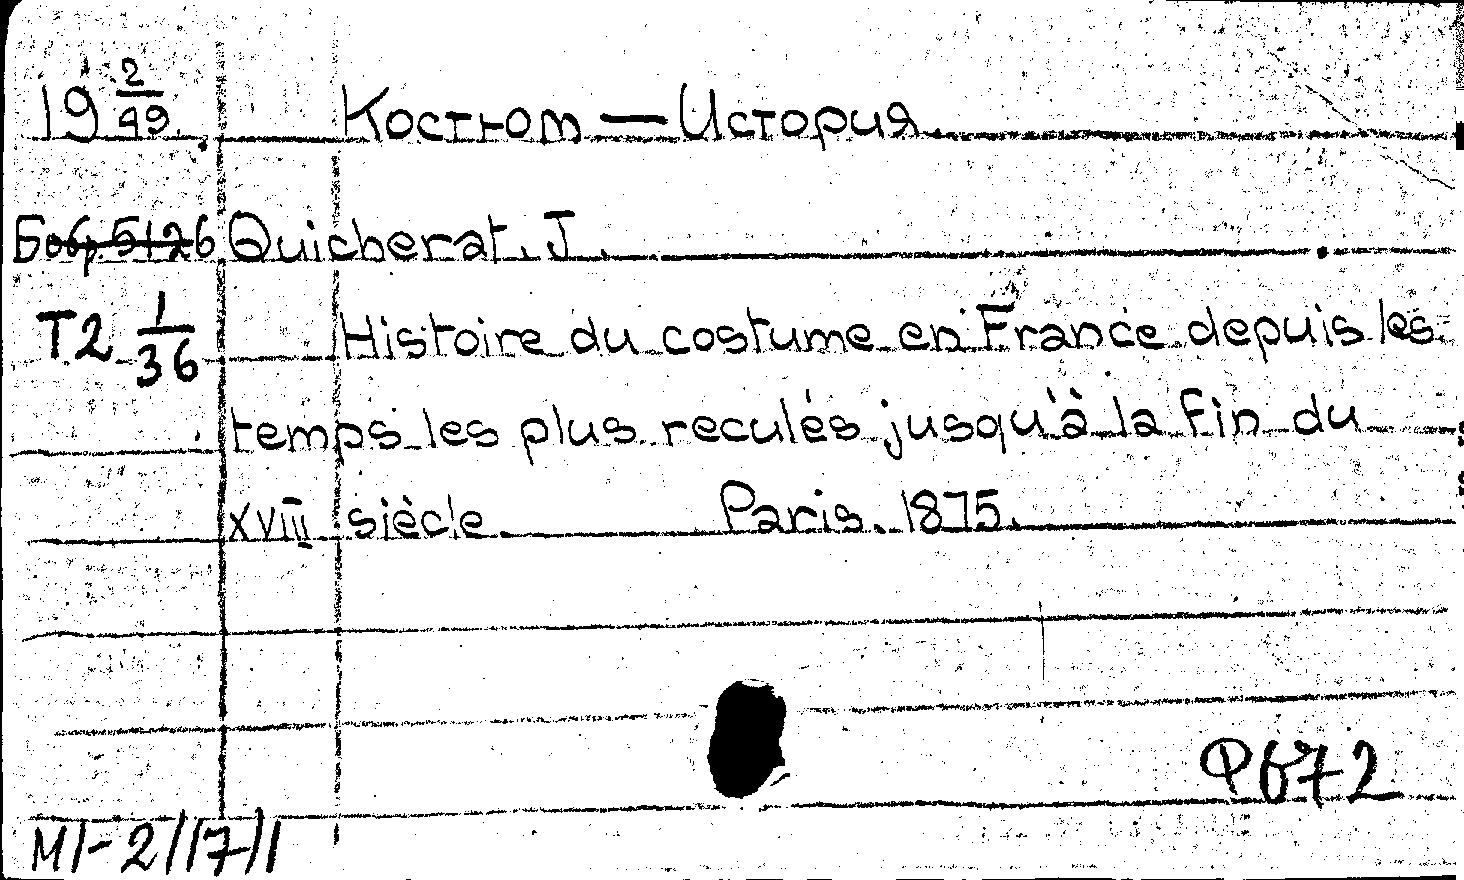 19 2/49 Костюм — История.
Бобр. 5126 Quicherat, J.
T2 1/36 Histoire du costume en France depuis les
temps les plus reculés jusqu'à la fin du
XVIII siècle. Paris. 1875.
Ф672
M1-2/17/1